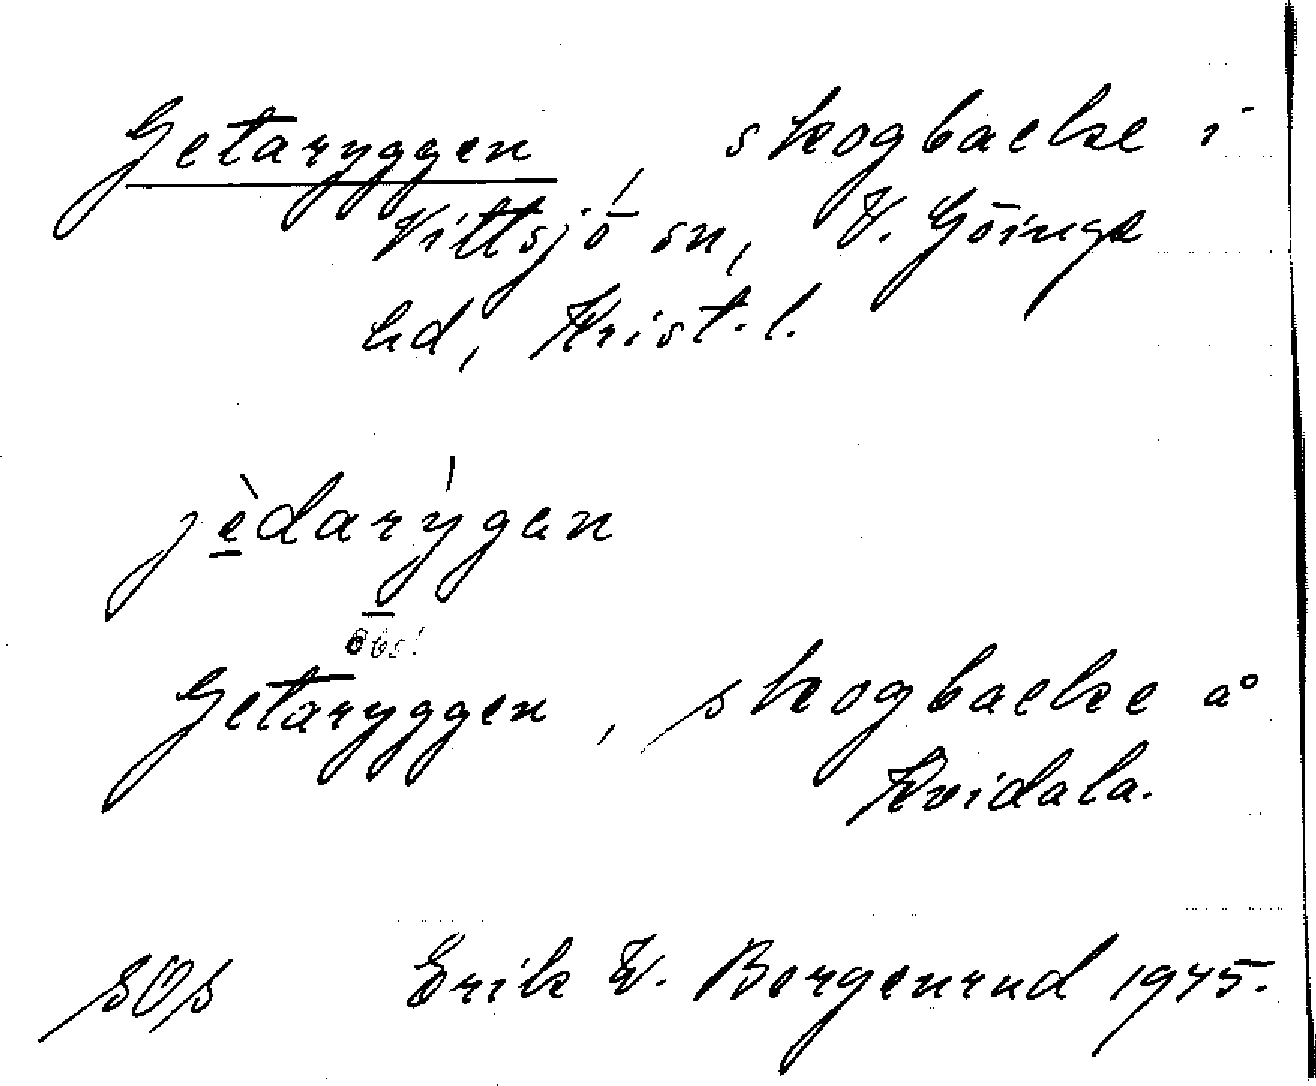 Getaryggen, skogbacke i
Vittsjö sn, V. Göinge
hd, Krist. l.
jèdarýgan
Obs!
Getaryggen, skogbacke å
Kvidala.
SOS Erik W. Borgenrud 1945.